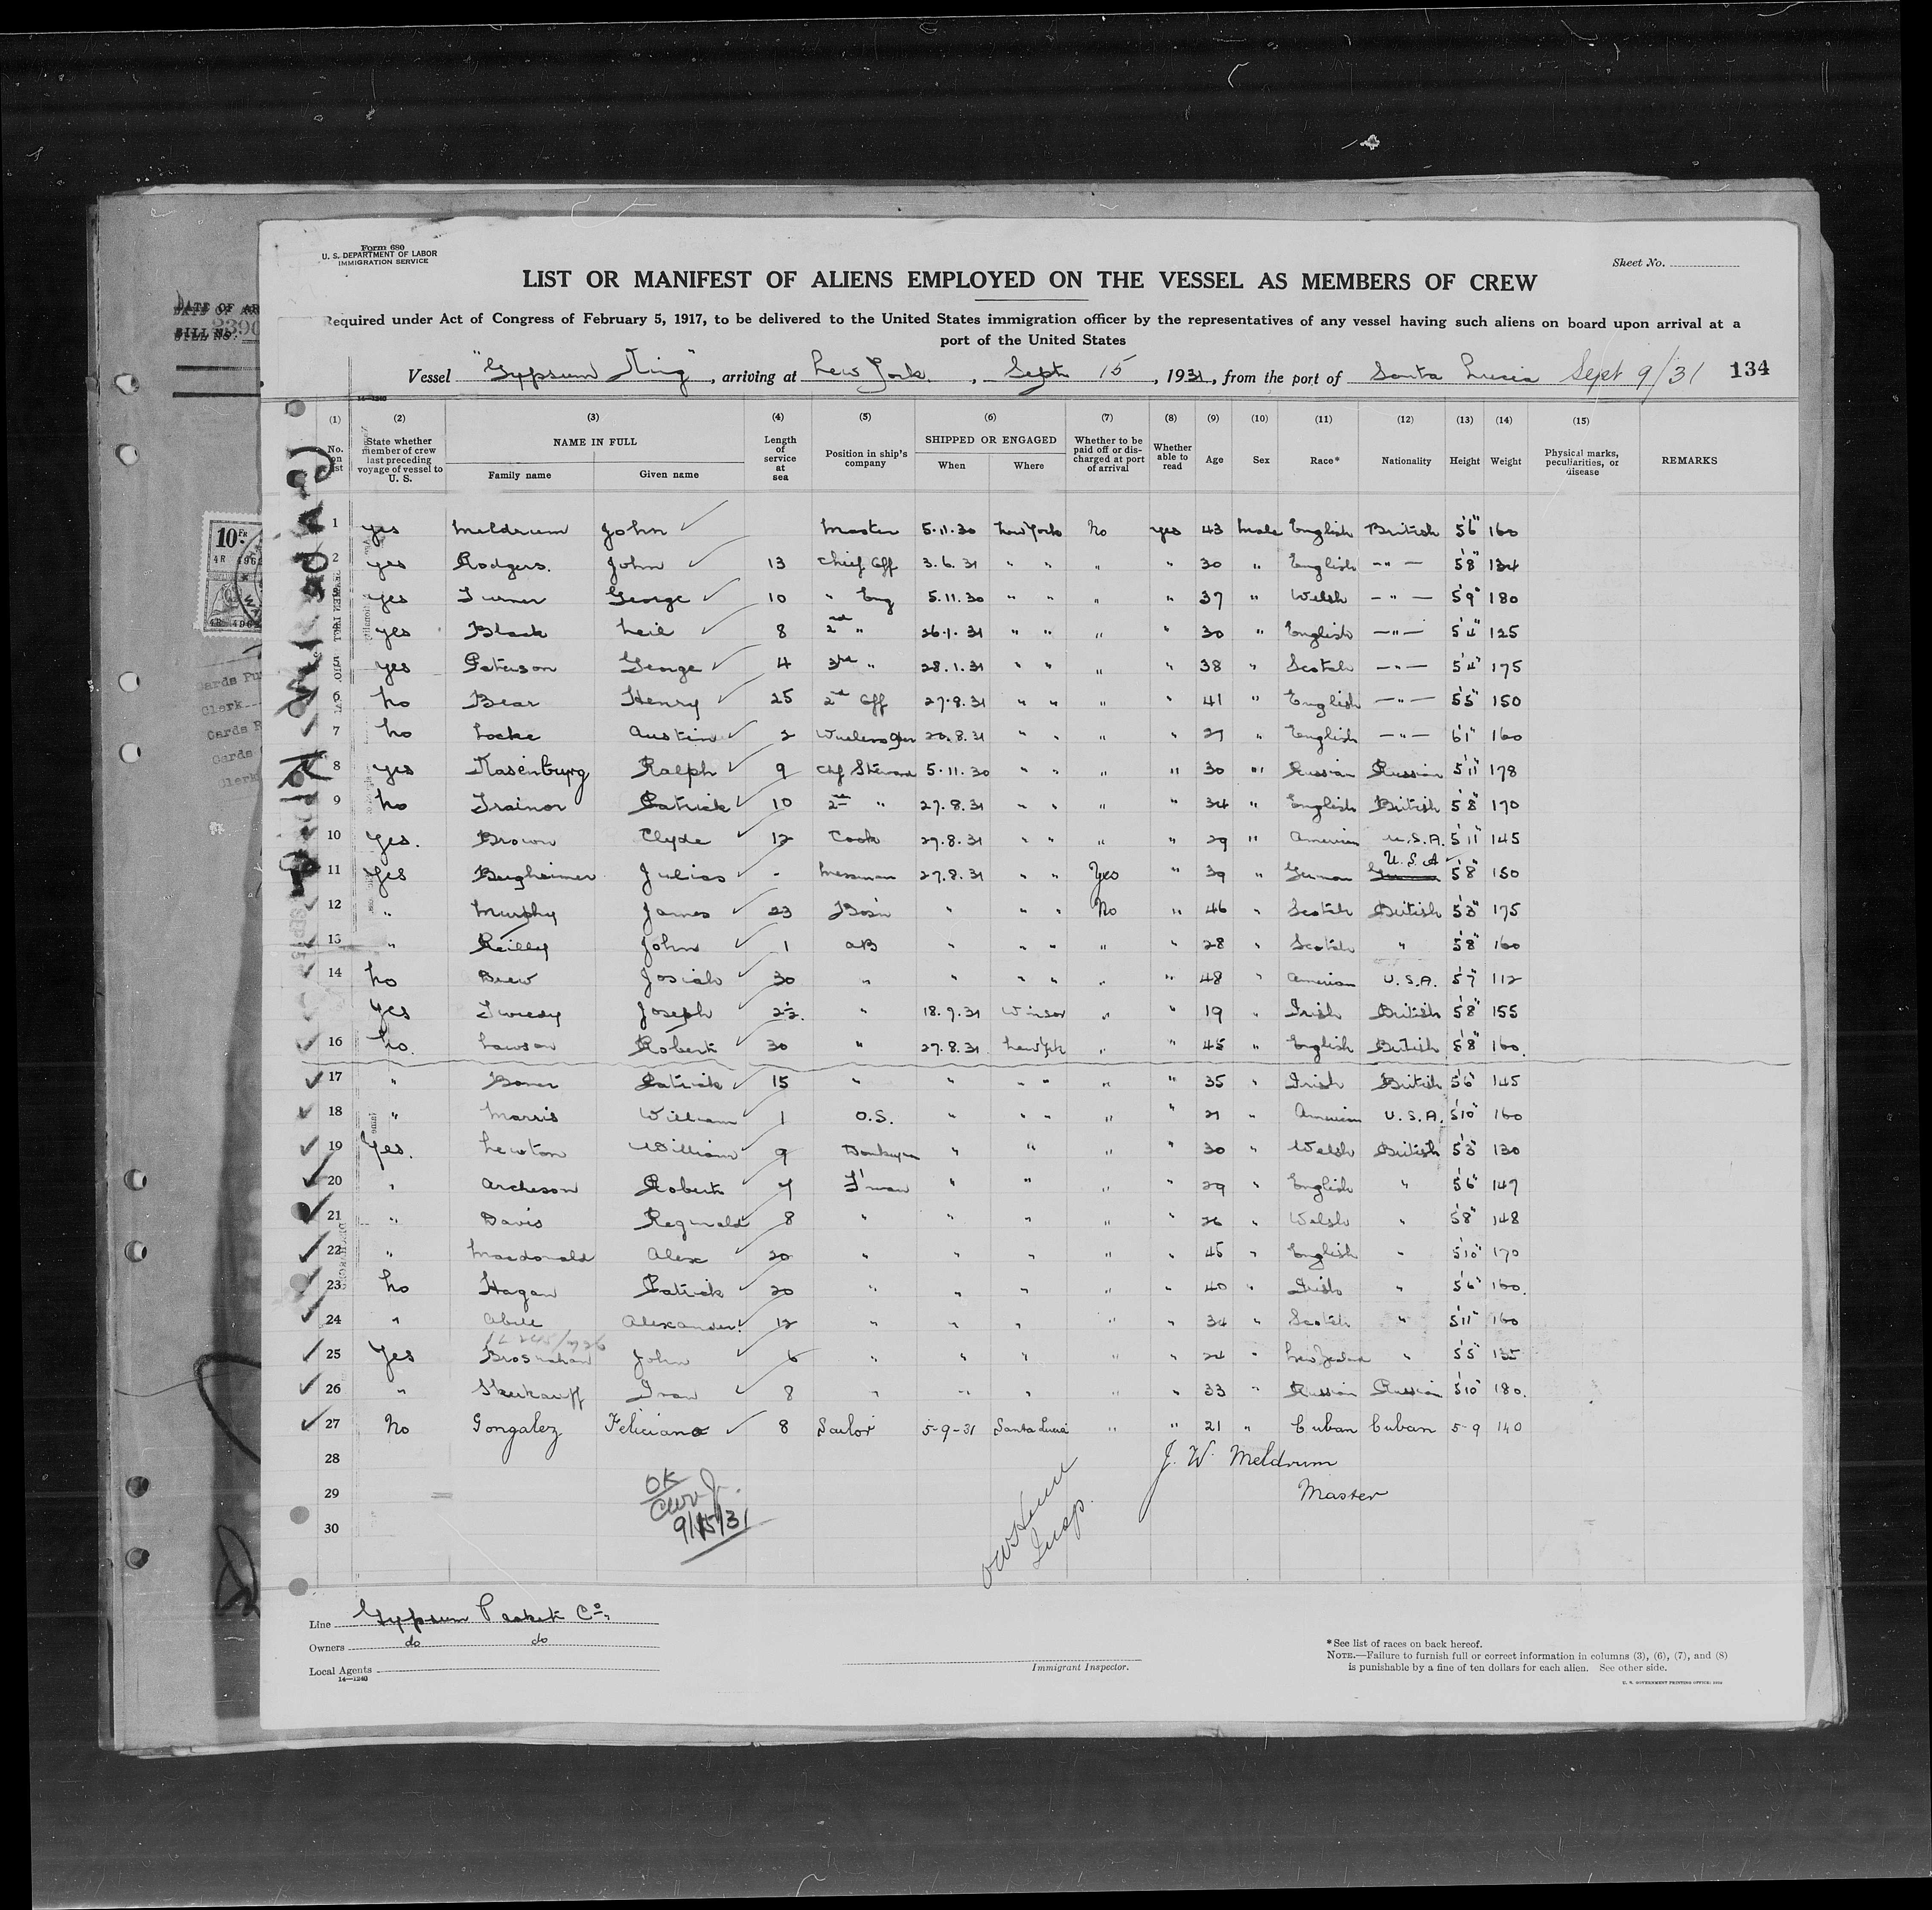 Form 680
U. S. DEPARTMENT OF LABOR
IMMIGRATION SERVICE
Sheet No.
LIST OR MANIFEST OF ALIENS EMPLOYED ON THE VESSEL AS MEMBERS OF CREW
Required under Act of Congress of February 5, 1917, to be delivered to the United States immigration officer by the representatives of any vessel having such aliens on board upon arrival at a
port of the United States
Vessel "Gypsum King", arriving at New York, Sept 15, 1931, from the port of Santa Lucia Sept 9/31 134
(1) (2) (3) (4) (5) (6) (7) (8) (9) (10) (11) (12) (13) (14) (15)
No. on list State whether member of crew last preceding voyage of vessel to U. S. NAME IN FULL Family name Given name Length of service at sea Position in ship's company SHIPPED OR ENGAGED When Where Whether to be paid off or discharged at port of arrival Whether able to read Age Sex Race* Nationality Height Weight Physical marks, peculiarities, or disease REMARKS
1 yes Meldrum John Master 5.11.30 New York No yes 43 Male English British 5'6" 160
2 yes Rodgers. John 13 Chief Off 3.6.31 " " " " 30 " English —"— 5'8" 134
yes Turner George 10 " Eng 5.11.30 " " " " 37 " Welsh —"— 5'9" 180
yes Black Neil 8 2nd " 26.1.31 " " " " 30 " English —"— 5'4" 125
yes Paterson George 4 3rd " 28.1.31 " " " " 38 " Scotch —"— 5'4" 175
6 No Bear Henry 25 2nd Off 27.8.31 " " " " 41 " English —"— 5'5" 150
7 No Locke Austin 2 Wireless Opr 20.8.31 " " " " 21 " English —"— 6'1" 160
8 yes Rasenburg Ralph 9 Chf Steward 5.11.30 " " " " 30 " Russian Russian 5'11" 178
9 No Trainor Patrick 10 2nd " 27.8.31 " " " " 34 " English British 5'8" 170
10 Yes. Brown Clyde 12 Cook 27.8.31 " " " " 29 " American U.S.A. 5'11" 145
11 Yes Bergheimer Julius - Messman 27.8.31 " " Yes " 39 " German U.S.A 5'8" 150
12 " Murphy James 23 Bos'n " " " No " 46 " Scotch British 5'3" 175
13 " Reilly John 1 AB " " " " " 28 " Scotch " 5'8" 160
14 No Brew Josiah 30 " " " " " " 48 " American U.S.A. 5'7" 112
Yes Tweedy Joseph 2½ " 18.7.31 Winsor " " 19 " Irish British 5'8" 155
16 No. Lawson Robert 30 " 27.8.31 New York " " 45 " English British 5'8" 160.
17 " Boner Patrick 15 " " " " " " 35 " Irish British 5'6" 145
18 " Morris William 1 O.S. " " " " " 21 " American U.S.A. 5'10" 160
19 Yes. Newton William 9 Donkeyman " " " " 30 " Welsh British 5'3" 130
20 " Archeson Robert 7 F'man " " " " 29 " English " 5'6" 147
21 " Davis Reginald 8 " " " " " 26 " Welsh " 5'8" 148
22 " Macdonald Alex 20 " " " " " 45 " English " 5'10" 170
23 No Hagan Patrick 20 " " " " " 40 " Irish " 5'6" 160.
24 " Alexander. 12 " " " " " 34 " Scotch " 5'11" 160
25 Yes Brosnahan John 6 " " " " " 24 " New Zealand " 5'5" 135
26 " Ivan 8 " " " " " 33 " Russian Russian 5'10" 180.
27 No Gongalez Feliciano 8 Sailor 5-9-31 Santa Lucia " " 21 " Cuban Cuban 5-9 140
28 J. W. Meldrum
29 Master
30
OK
9/15/31
Insp.
Line Gypsum Packet Co.
Owners do do
Local Agents
14—1240
Immigrant Inspector.
*See list of races on back hereof.
NOTE.—Failure to furnish full or correct information in columns (3), (6), (7), and (8)
is punishable by a fine of ten dollars for each alien. See other side.
U. S. GOVERNMENT PRINTING OFFICE